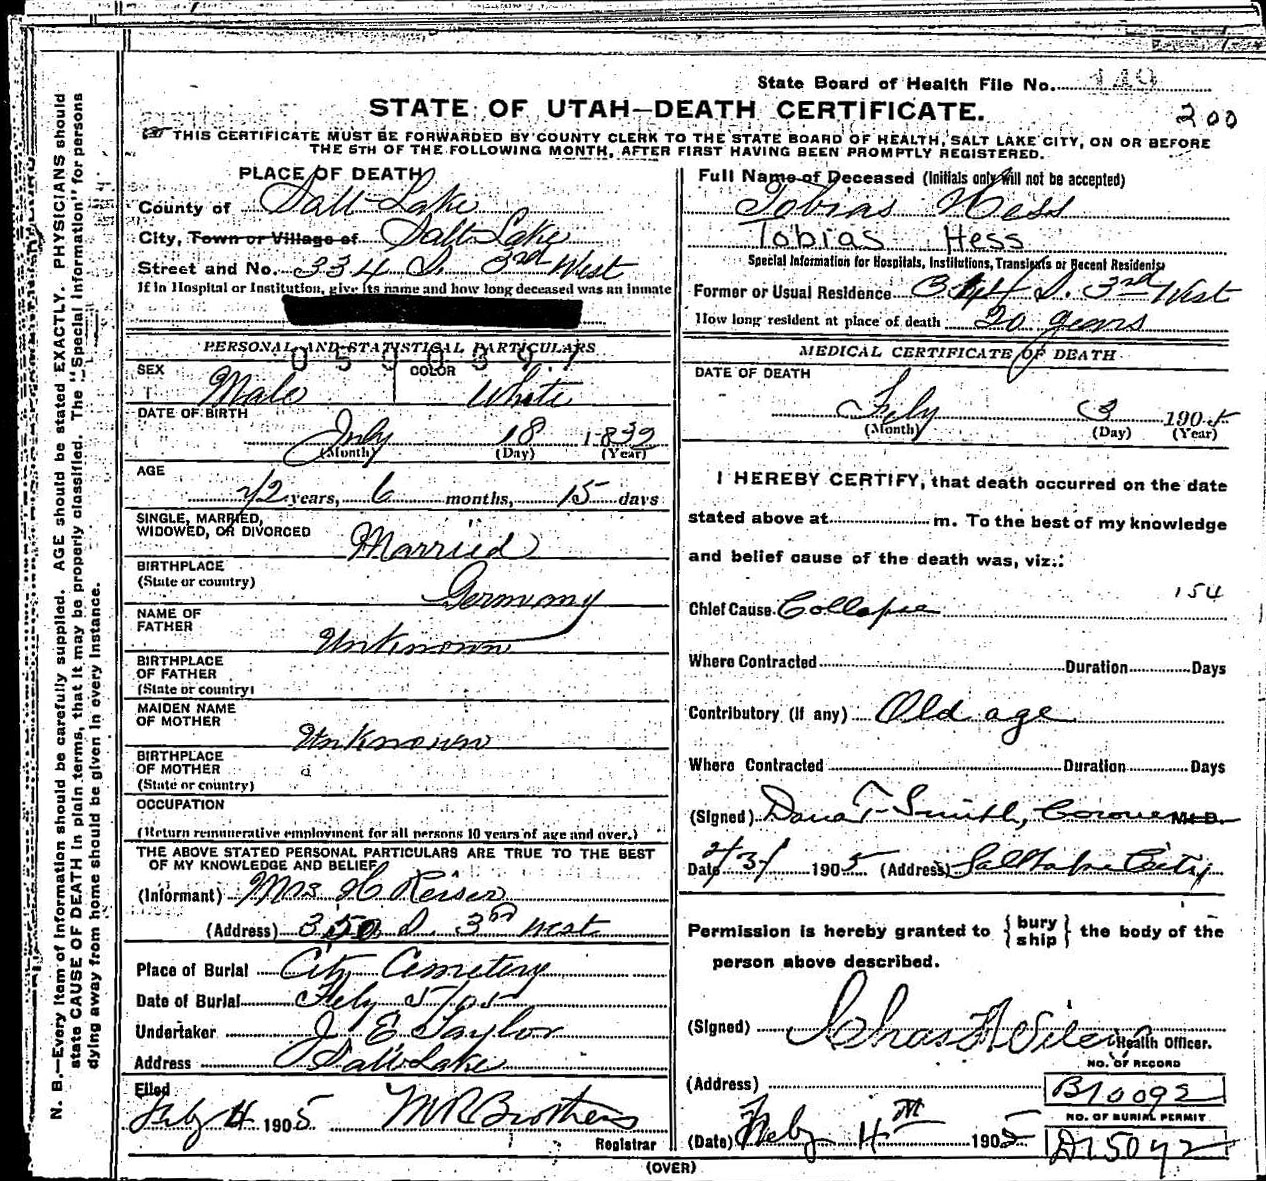 State Board of Health File No. 149
STATE OF UTAH—DEATH CERTIFICATE.
200
THIS CERTIFICATE MUST BE FORWARDED BY COUNTY CLERK TO THE STATE BOARD OF HEALTH, SALT LAKE CITY, ON OR BEFORE
THE 5TH OF THE FOLLOWING MONTH, AFTER FIRST HAVING BEEN PROMPTLY REGISTERED.
N. B.—Every item of information should be carefully supplied. AGE should be stated EXACTLY. PHYSICIANS should
state CAUSE OF DEATH in plain terms, that it may be properly classified. The "Special Information" for persons
dying away from home should be given in every instance.
PLACE OF DEATH
County of Salt Lake
City, Town or Village of Salt Lake
Street and No. 334 S. 3rd West
If in Hospital or Institution, give its name and how long deceased was an inmate
PERSONAL AND STATISTICAL PARTICULARS
0590397
SEX Male
COLOR White
DATE OF BIRTH
July 18 1832
(Month) (Day) (Year)
AGE
72 years, 6 months, 15 days
SINGLE, MARRIED,
WIDOWED, OR DIVORCED Married
BIRTHPLACE
(State or country) Germany
NAME OF
FATHER Unknown
BIRTHPLACE
OF FATHER
(State or country)
MAIDEN NAME
OF MOTHER Unknown
BIRTHPLACE
OF MOTHER
(State or country)
OCCUPATION
(Return remunerative employment for all persons 10 years of age and over.)
THE ABOVE STATED PERSONAL PARTICULARS ARE TRUE TO THE BEST
OF MY KNOWLEDGE AND BELIEF
(Informant) Mrs H Reiser
(Address) 350 S. 3rd West
Place of Burial City Cemetery
Date of Burial Feby 5/05
Undertaker J E Taylor
Address Salt Lake
Filed
Feby 4 1905 M R Brothers
Registrar
Full Name of Deceased (Initials only will not be accepted)
Tobias Hess
Tobias Hess
Special Information for Hospitals, Institutions, Transients or Recent Residents
Former or Usual Residence 344 S. 3rd West
How long resident at place of death 20 years
MEDICAL CERTIFICATE OF DEATH
DATE OF DEATH
Feby 3 1905
(Month) (Day) (Year)
I HEREBY CERTIFY, that death occurred on the date
stated above at m. To the best of my knowledge
and belief cause of the death was, viz.:
154
Chief Cause Collapse
Where Contracted Duration Days
Contributory (if any) Old age
Where Contracted Duration Days
(Signed) Dana T Smith, Coroner M. D.
Date 2/3/ 1905 (Address) Salt Lake City
Permission is hereby granted to { bury ship } the body of the
person above described.
(Signed) Chas F Wilcox Health Officer.
NO. OF RECORD
(Address) B10092
NO. OF BURIAL PERMIT
(Date) Feby 4th 1905 D15092
(OVER)